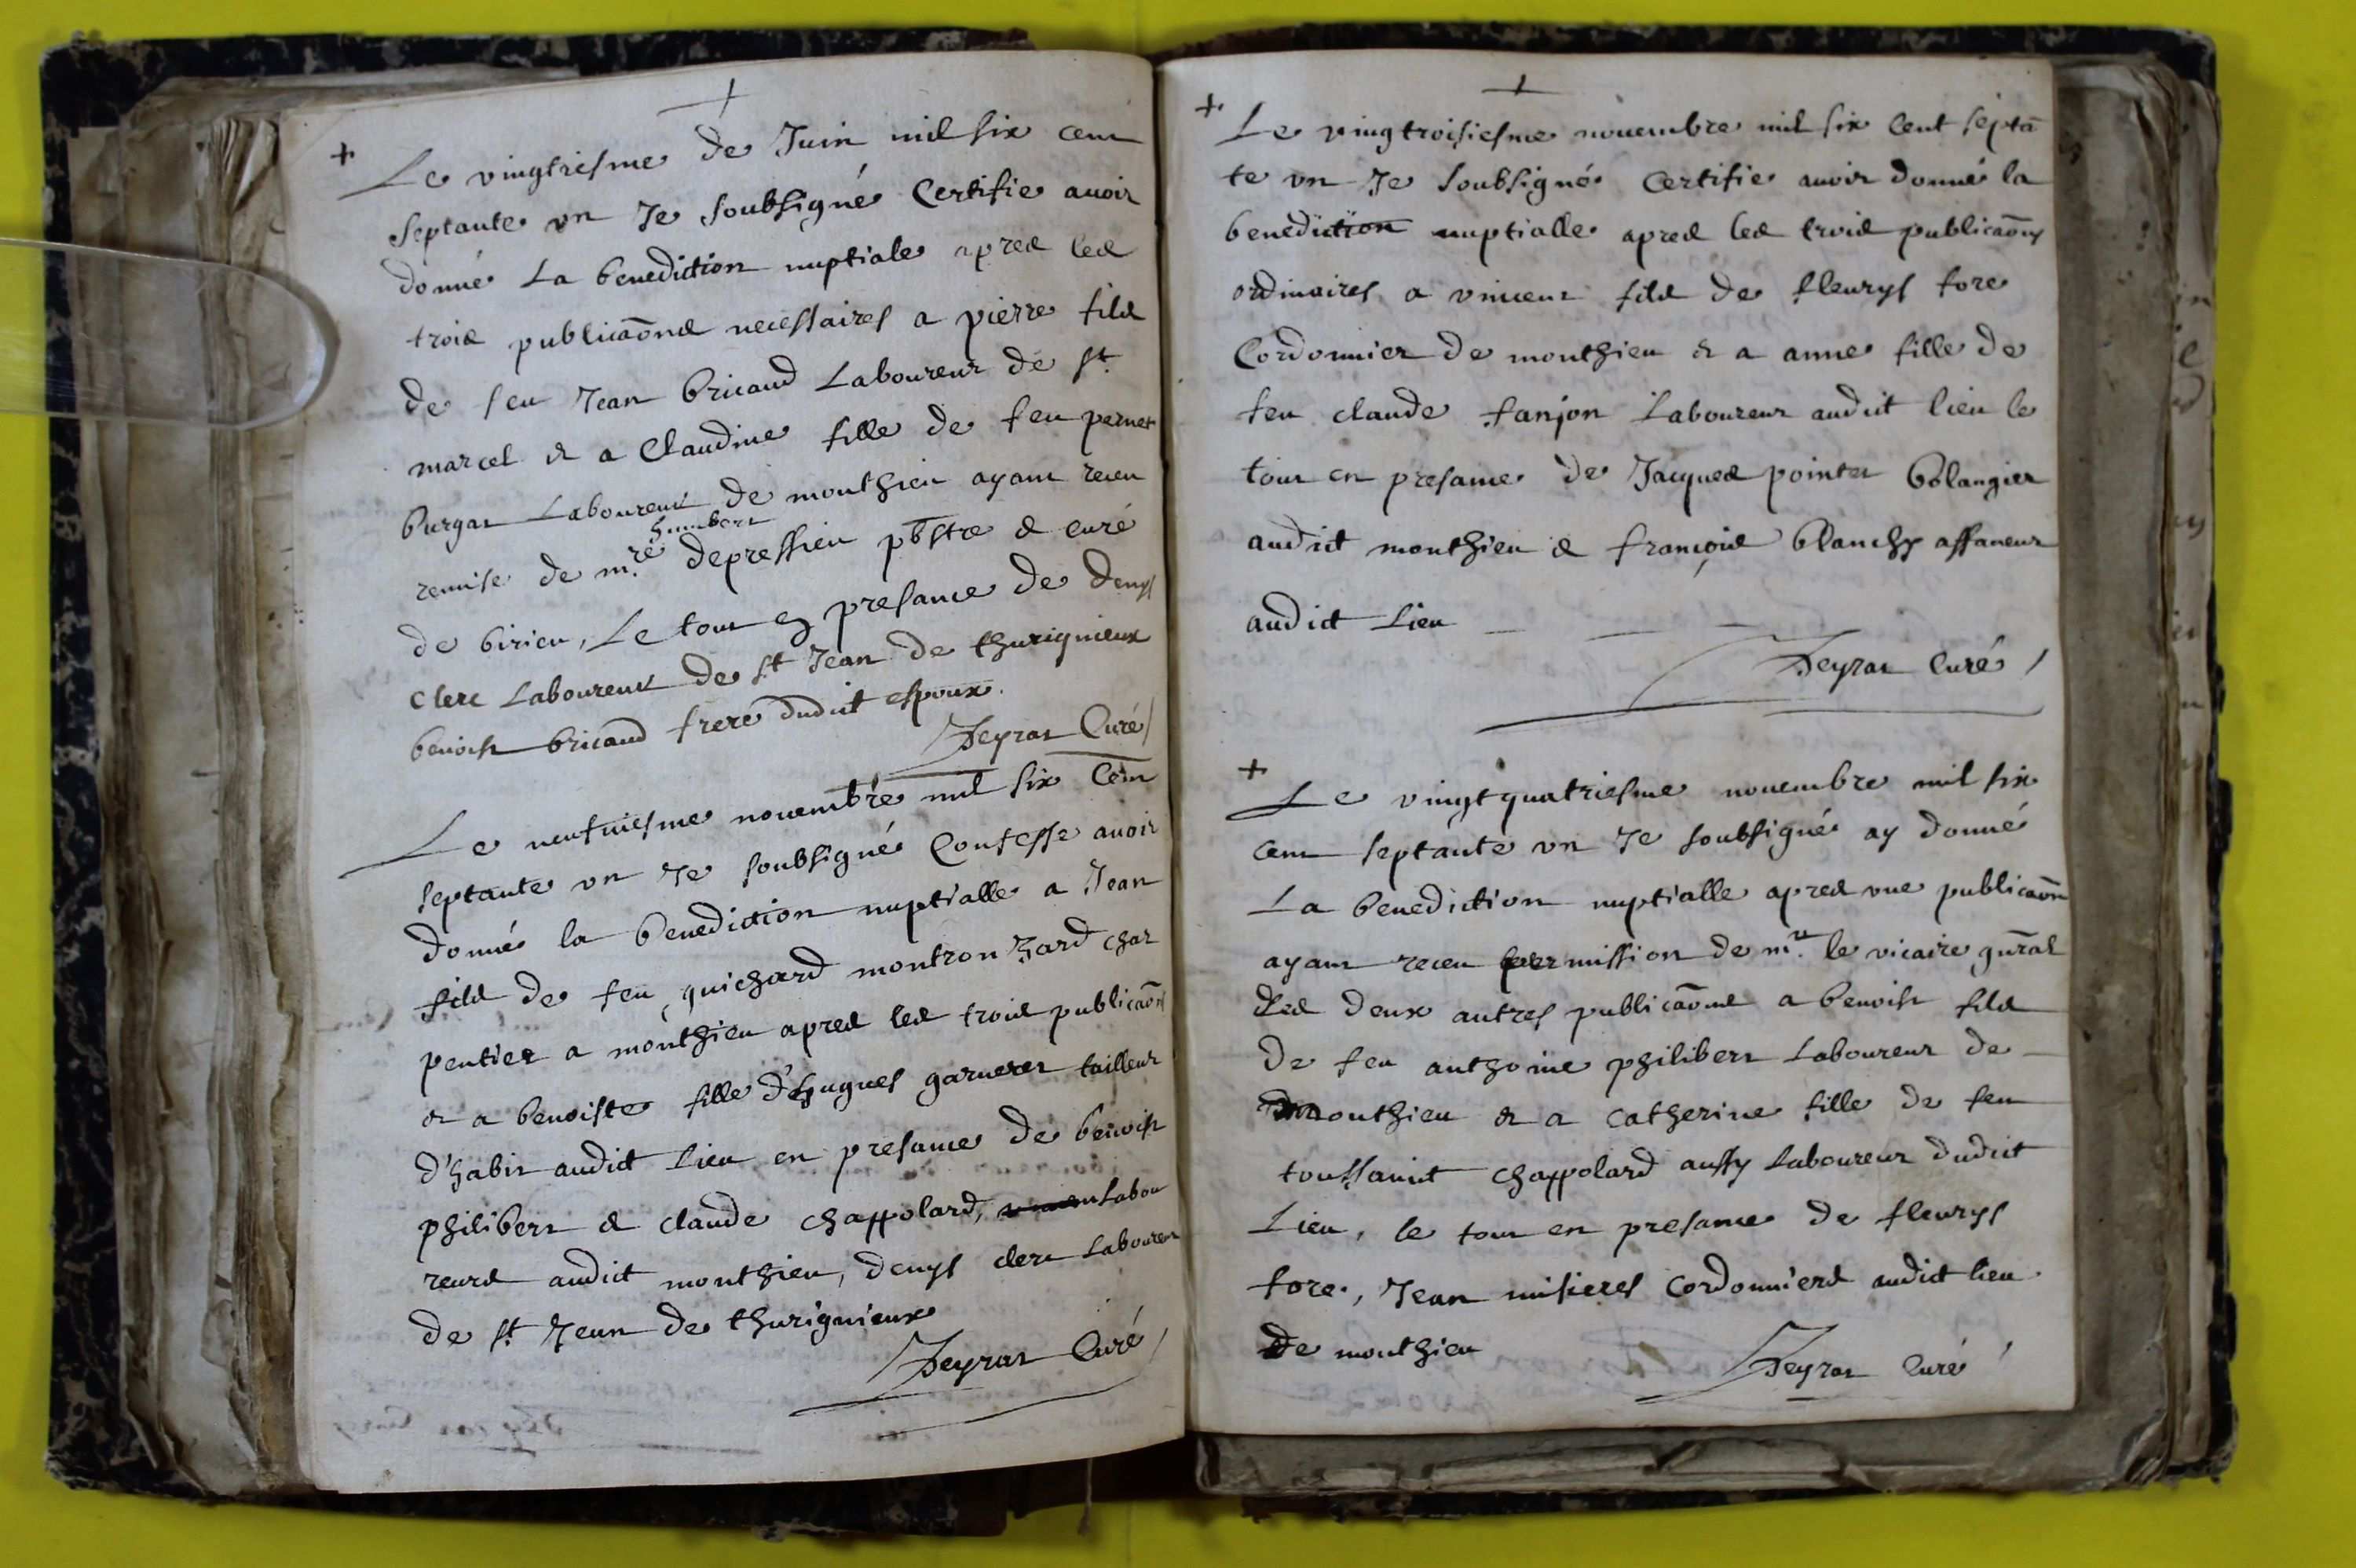 +
+ Le vingtiesme de Juin mil six cent
septante vn Je soubsigné Certifie auoir
donné La benediction nuptiale apres les
trois publicaõns necessaires a pierre fils
de feu Jean bricaud Laboureur de st
marcel & a Claudine fille de feu pernet
burgat Laboureur de monthieu ayant receu
humbert
remise de mre depressieu pbstre & curé
de birieu, Le tout en presance de denys
clerc Laboureur de st Jean de thurignieux
benoist bricaud frere dudit espoux.
Peyrat Curé
Le neufuiesme nouembre mil six Cent
septante vn Je soubsigné Confesse auoir
donné la benediction nuptialle a Jean
fils de feu guichard montronzard char
pentier a monthieu apres les trois publicaõns
& a benoiste fille d'hugues garneret tailleur
d'habit audict Lieu en presance de benoist
philibert & claude chappolard, Labou
reurs audict monthieu, denys clerc Laboureur
de st Jean de thurignieux
Peyrat Curé
+
+ Le vingtroisiesme nouembre mil six Cent septã
te vn Je soubsigné Certifie auoir donné la
benediction nuptialle apres les trois publicaõns
ordinaires a vincent fils de fleurys fore
Cordonnier de monthieu & a anne fille de
feu claude fanjon Laboureur audit lieu le
tout en presance de Jacques pointet bolangier
audict monthieu & françois blanchy affaneur
audict Lieu
Peyrat Curé
+
Le vingtquatriesme nouembre mil six
cent septante vn Je soubsigné ay donné
La benediction nuptialle apres vne publicaõn
ayant receu permission de mr le vicaire gñral
des deux autres publicaõns a benoist fils
de feu anthoine philibert Laboureur de
monthieu & a catherine fille de feu
toussainct chappolard aussy Laboureur dudict
Lieu, le tout en presance de fleurys
fore, Jean misieres Cordonniers audict lieu
de monthieu
Peyrat Curé